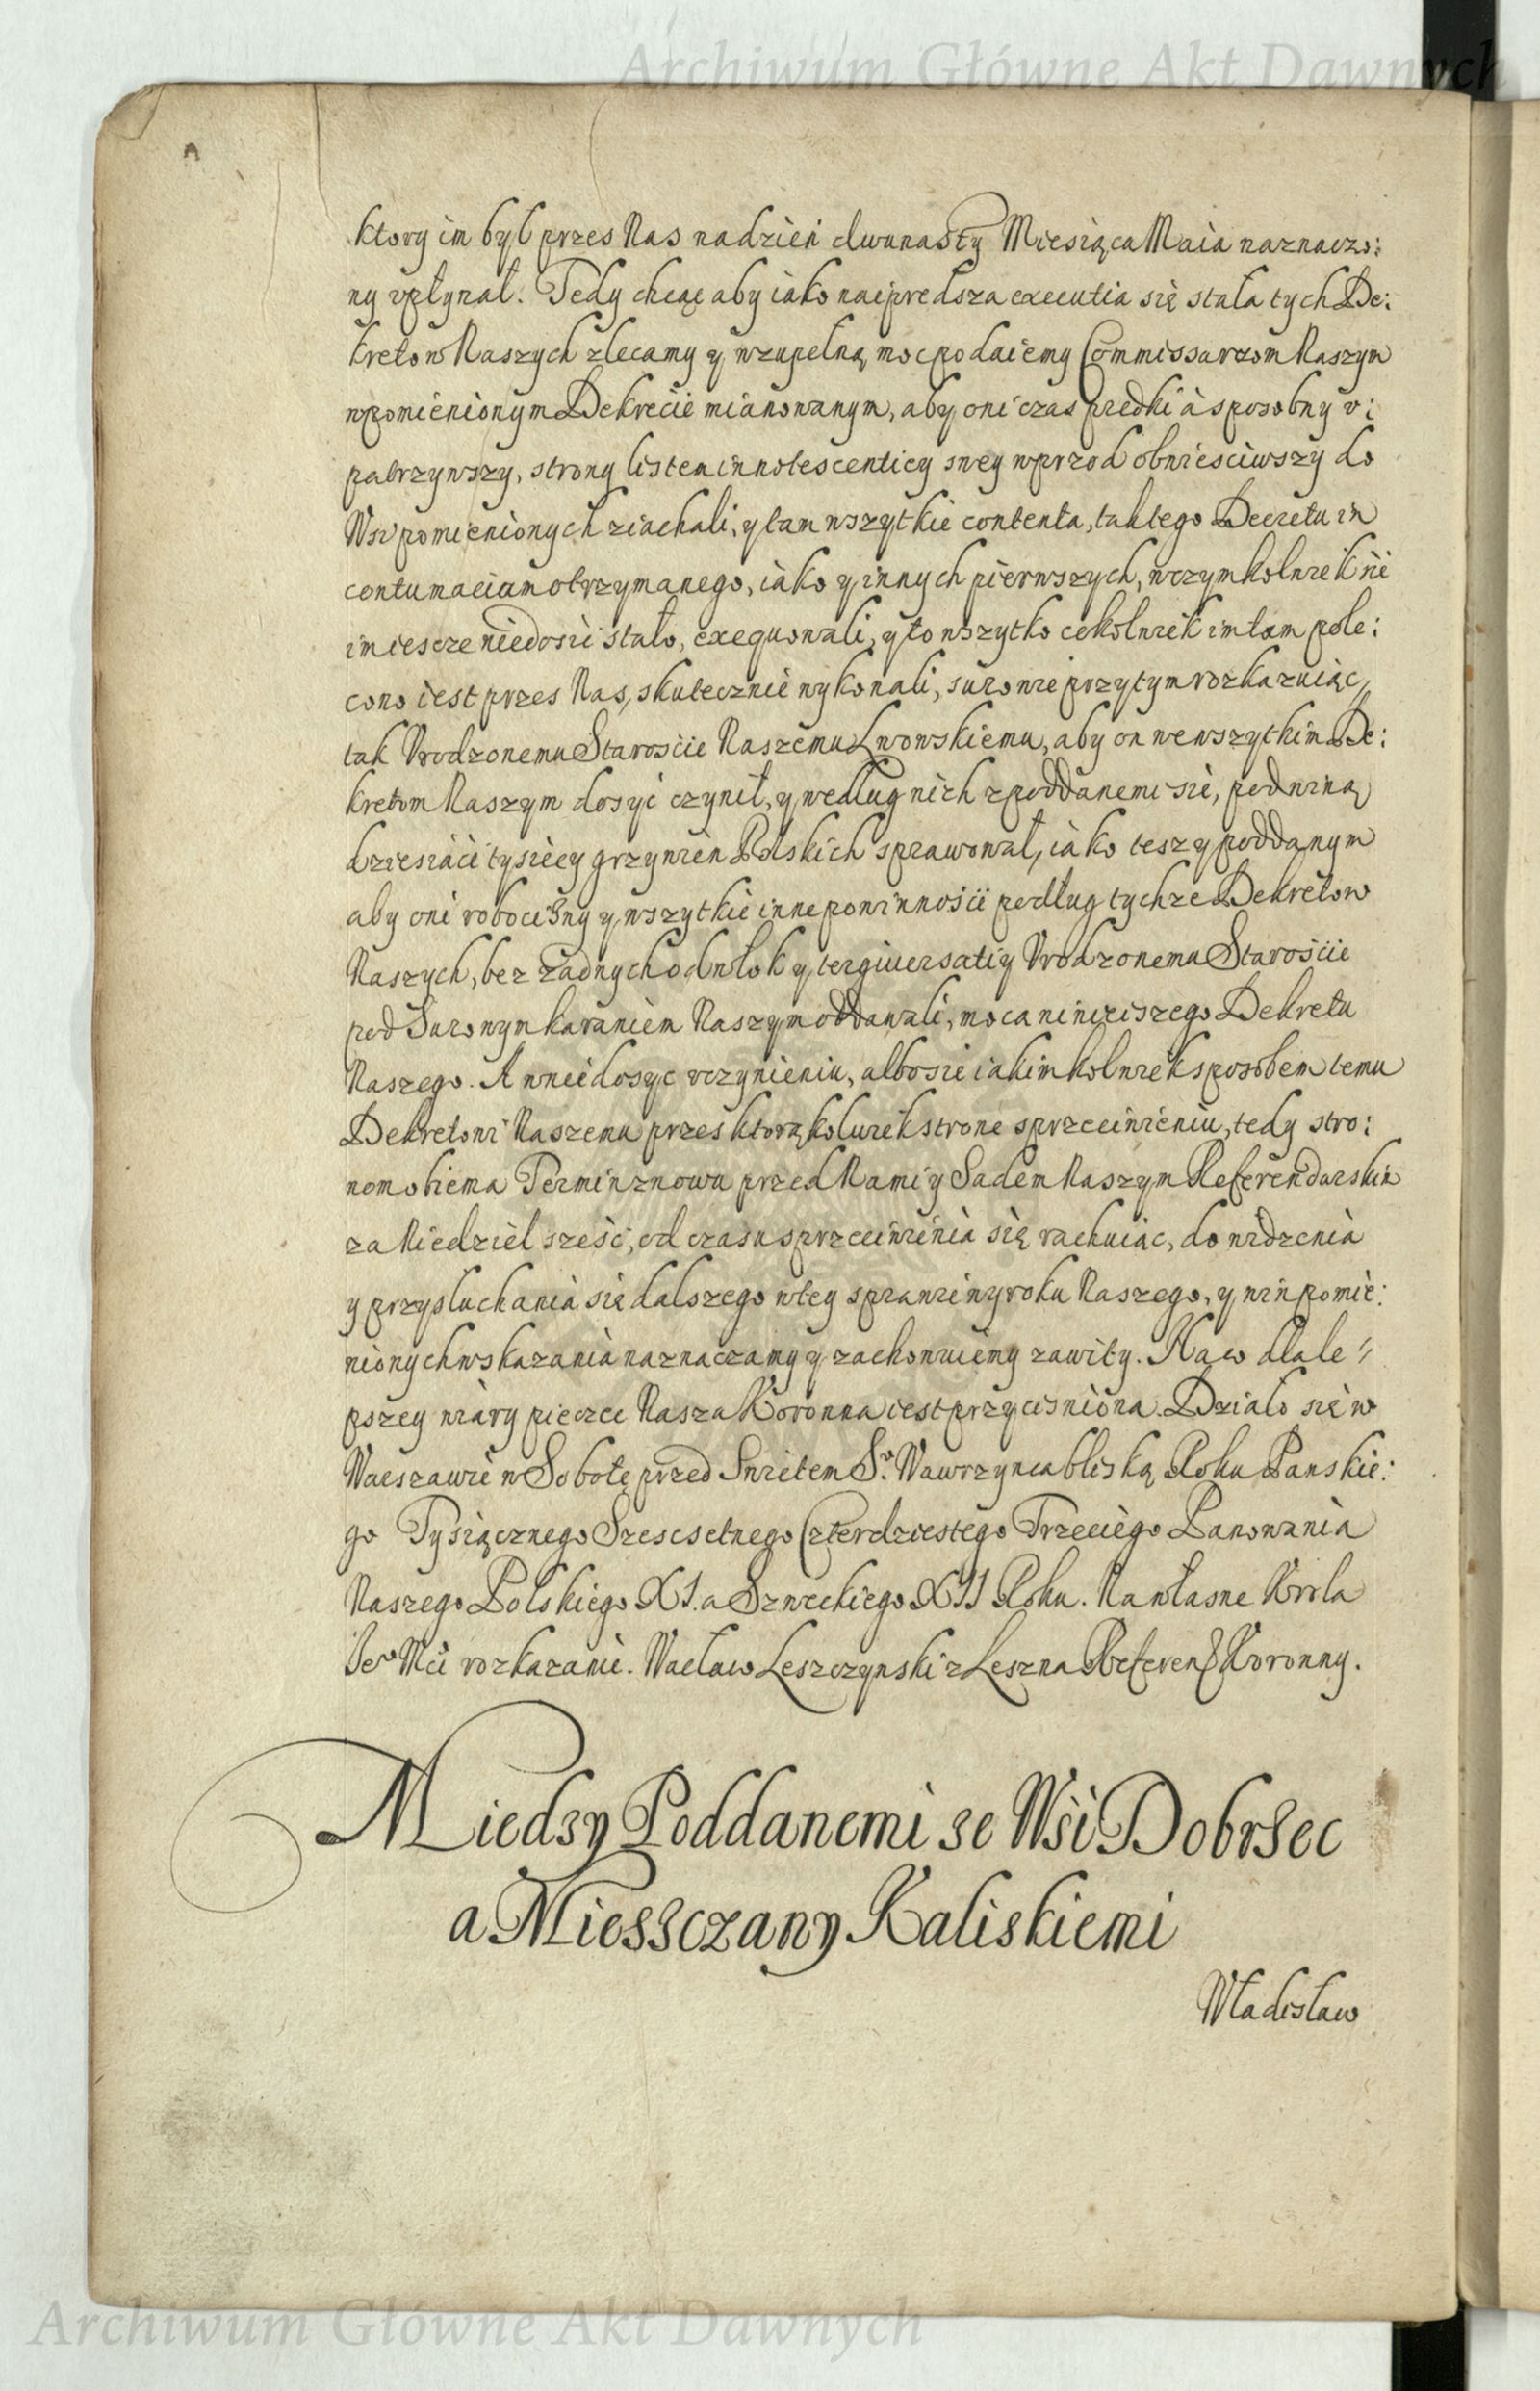 Archiwum Główne Akt Dawnych
ktory im był przes Nas na dzień dwunasty Miesiąca Maia naznaczo:
ny vpłynał. Tedy chcąc aby iako naiprędsza executia się stała tych De:
kretow Naszych zlecamy y wzupełną moc podaiemy Commissarzom Naszym
wpomienionym Dekrecie mianowanym, aby oni czas prędki à sposobny v:
patrzywszy, strony listem innotescenticy swey wprzod obwiesciwszy do
Wsi pomienionych ziachali, y tam wszytkie contenta, tak tego Decretu in
contumaciam otrzymanego, iako y innych pierwszych, w czymkolwiek się
im iescze niedosić stało, exequowali, y to wszytko cokolwiek im tam pole:
cono iest przes Nas, skutecznie wykonali, surowie przytym rozkazuiąc,
tak Vrodzonemu Starosćie Naszemu Lwowskiemu, aby on we wszytkim De:
kretom Naszym dosyć czynił, y według nich z poddanemi się, pod winą
dziesiąci tysięcy grzywien Polskich sprawował, iako tesz y poddanym
aby oni robocizny y wszytkie inne powinnośći podług tychże Dekretow
Naszych, bez żadnych odwłok y tergiuersatiy Vrodzonemu Starosćie
pod Surowym karaniem Naszym oddawali, moca ninieiszego Dekretu
Naszego. A w niedosyc vczynieniu, albo sie iakimkolwiek sposobem temu
Dekretowi Naszemu przes ktorąkolwiek strone sprzeciwieniu, tedy stro:
nom obiema Termin znowu przed Nami y Sadem Naszym Referendarskim
za Niedziel sześć, od czasu sprzeciwienia się rachuiąc, do widzenia
y przysłuchania się dalszego w tey sprawie wyroku Naszego, y win pomie:
nionych wskazania naznaczamy y zachowuiemy zawity. Na co dla le//
pszey wiary pieczec Nasza Koronna iest przycisniona. Działo się w
Warszawie w Sobotę przed Swietem Sº. Wawrzynca bliską Roku Panskie:
go Tysiącznego Szescsetnego Czterdziestego Trzeciego Panowania
Naszego Polskiego XI. a Szweckiego XII Roku. Na własne Krola
Jeº Mći rozkazanie. Wacław Leszczynski z Leszna Referend Koronny.
Miedzy Poddanemi ze Wsi Dobrzec
a Miesszczany Kaliskiemi
Władisław
Archiwum Główne Akt Dawnych